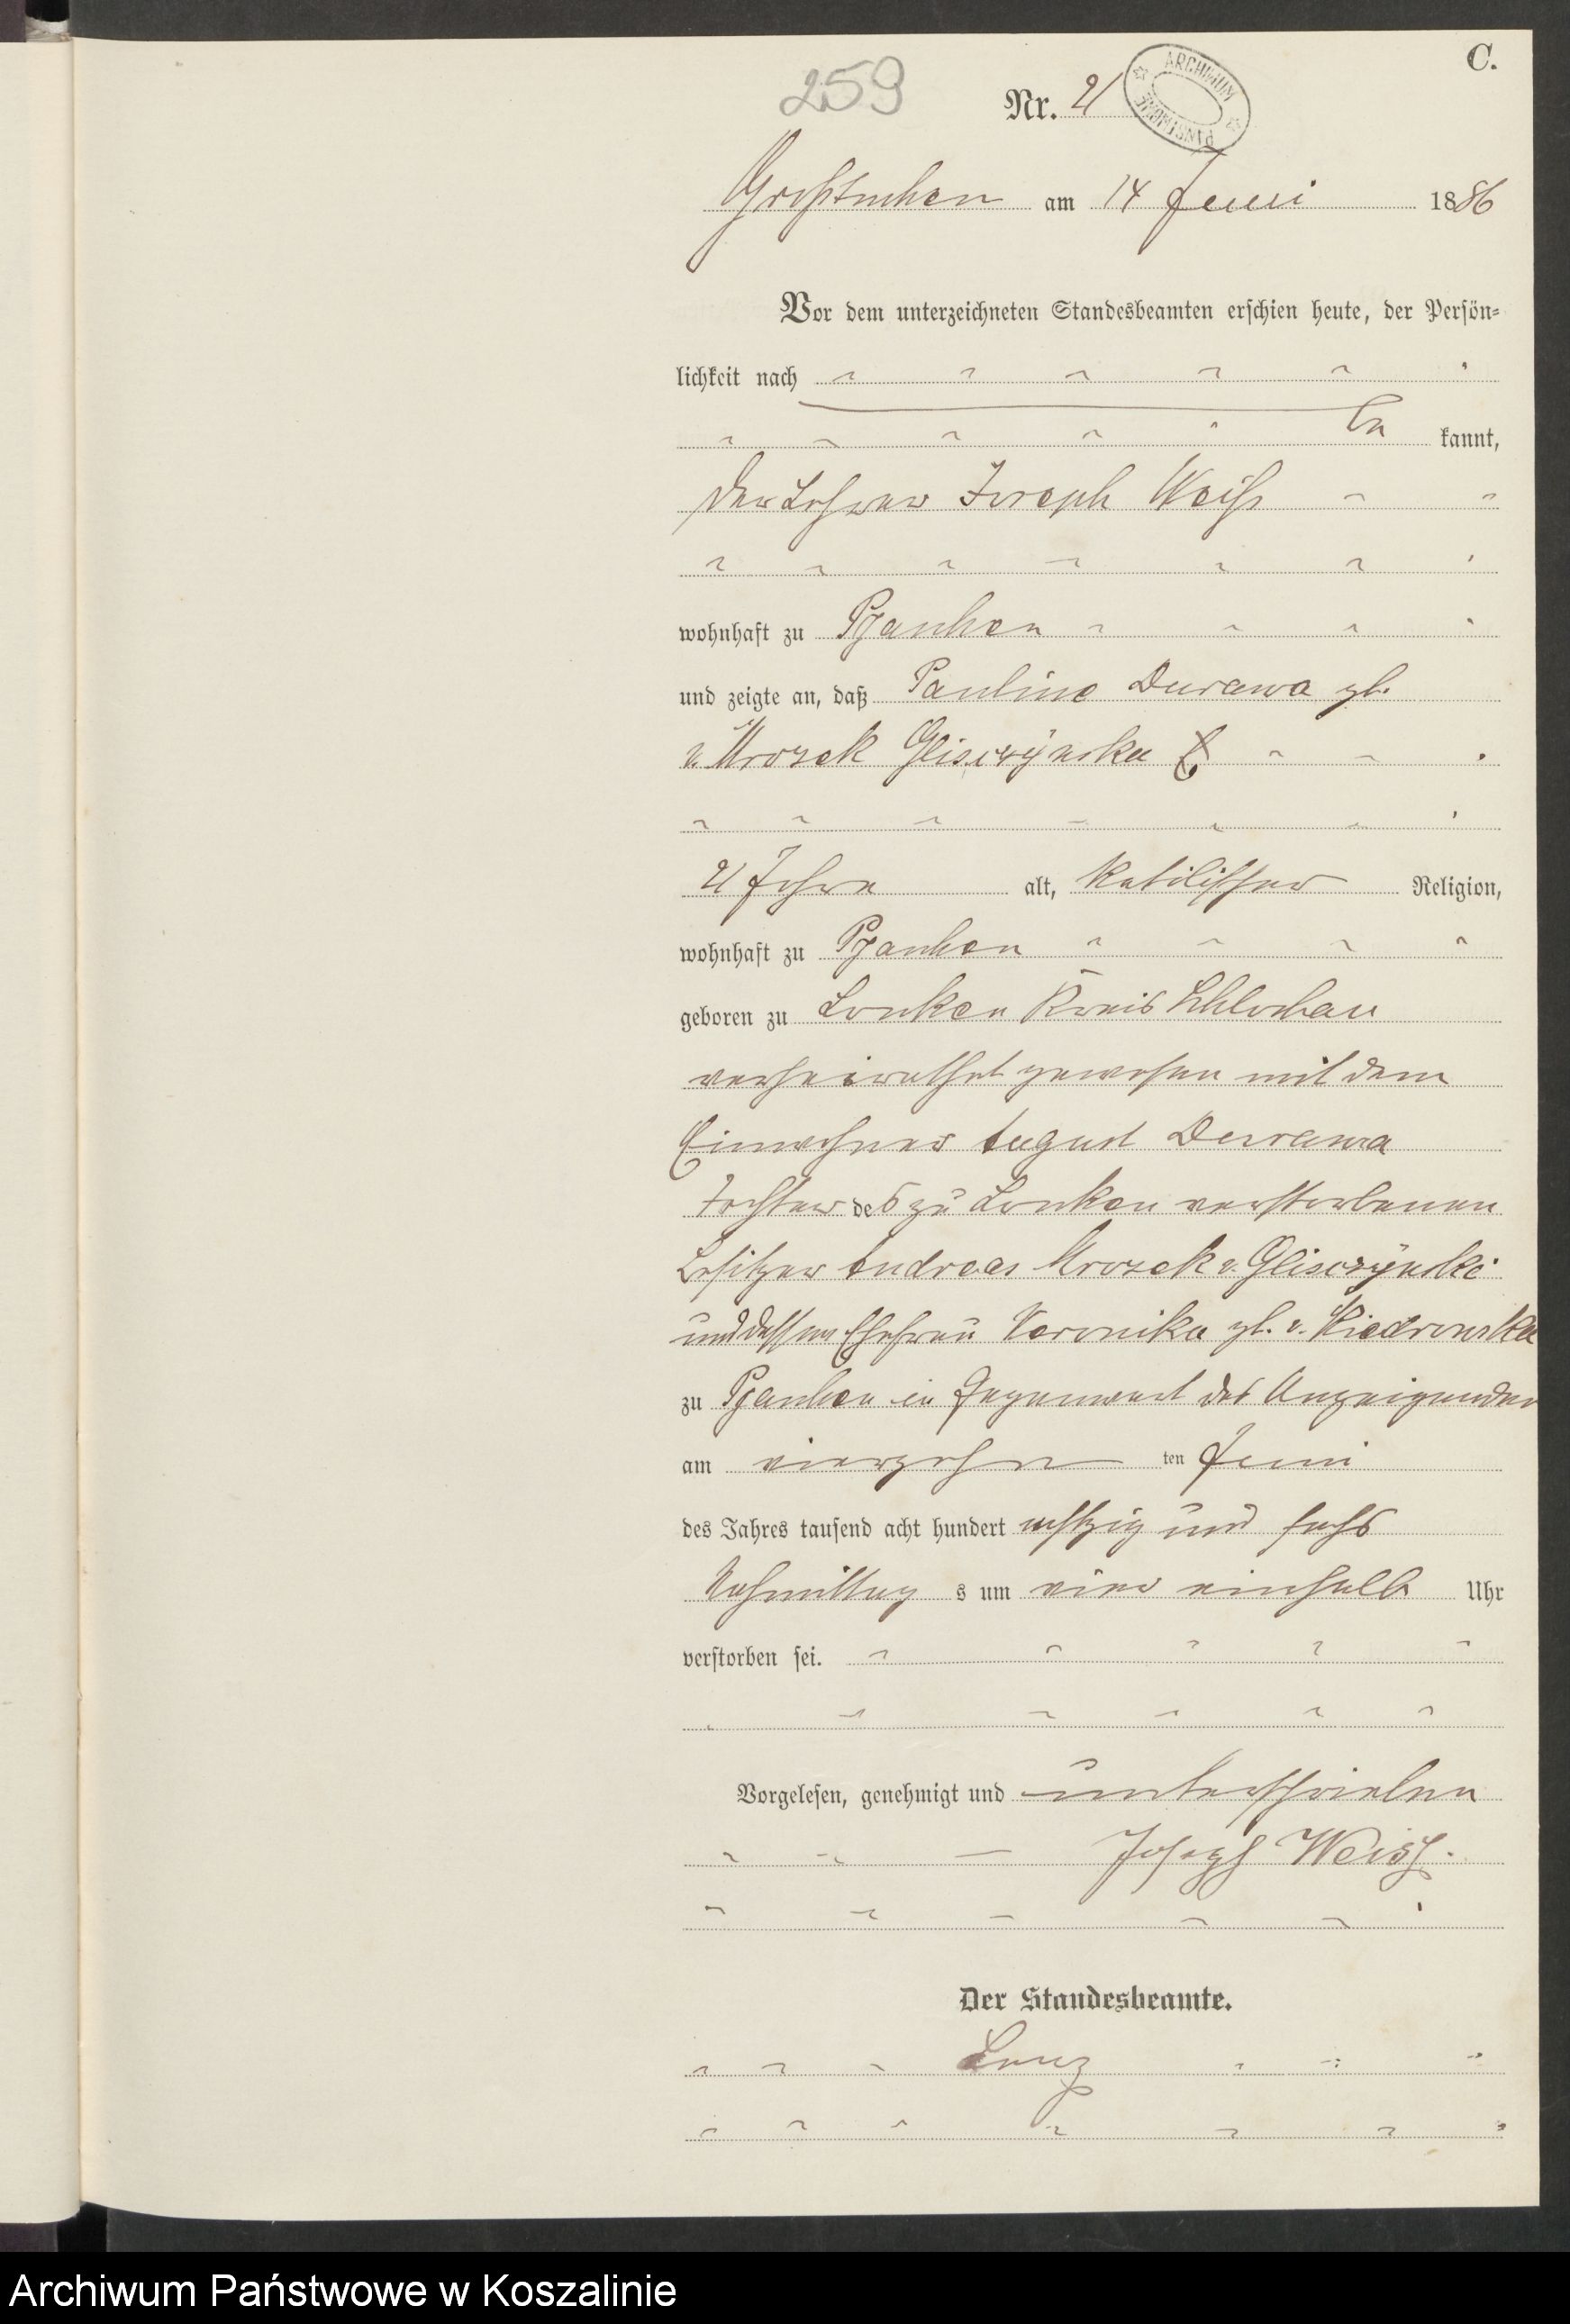 C.
259
Nr. 21
ARCHIWUM PAŃSTWOWE
Großtuchen am 14 Juni 1886
Vor dem unterzeichneten Standesbeamten erschien heute, der Persön-
lichkeit nach
be kannt,
der Lehrer Joseph Weiß
wohnhaft zu Pyaschen
und zeigte an, daß Pauline Durawa gb.
v. Mrozek Glisczÿnska
21 Jahre alt, katolischer Religion,
wohnhaft zu Pyaschen
geboren zu Lonken Kreis Schlochau
verheirathet gewesen mit dem
Einwohner August Durawa
Tochter des zu Lonken verstorbenen
Besitzer Andreas Mrozek v. Glisczÿnski
und dessen Ehefrau Veronika gb. v. Kiedrowska
zu Pyaschen in Gegenwart des Anzeigenden
am vierzehn ten Juni
des Jahres tausend acht hundert achtzig und sechs
Nachmittag s um vier einhalb Uhr
verstorben sei.
Vorgelesen, genehmigt und unterschrieben
Joseph Weiß.
Der Standesbeamte.
Lenz
Archiwum Państwowe w Koszalinie